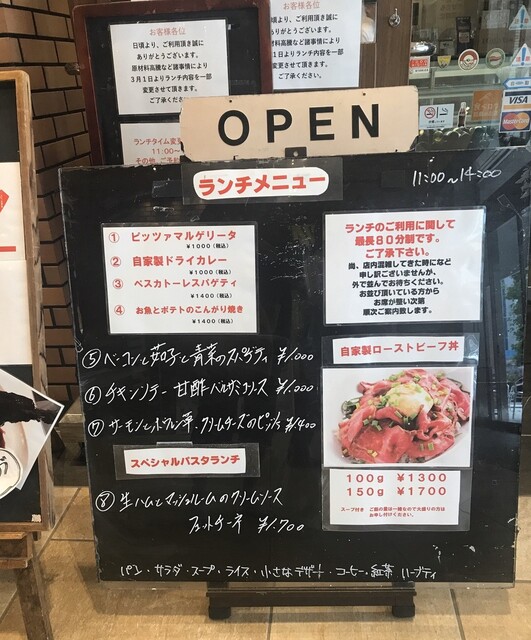 お客様各位
日頃より、ご利用頂き誠に
ありがとうございます。
原材料高騰など諸事情により
3月1日よりランチ内容を一部
変更させて頂きます。
ご了承ください。
お客様各位
日頃より、ご利用頂き誠に
ありがとうございます。
原材料高騰など諸事情により
1日よりランチ内容を一部
変更させて頂きます。
ご了承ください。
ランチタイム変
11:00~
OPEN
VISA
MasterCard
ランチメニュー
11:00~14:00
① ピッツァマルゲリータ
¥1000(税込)
② 自家製ドライカレー
¥1000(税込)
③ ペスカトーレスパゲティ
¥1400(税込)
④ お魚とポテトのこんがり焼き
¥1400(税込)
⑤ベーコンと茄子と青菜のスパゲティ ¥1000
⑥チキンソテー 甘酢バルサミコソース ¥1000
⑦サーモンとホウレン草、クリームチーズのピッツァ ¥1400
スペシャルパスタランチ
⑧生ハムとマッシュルームのクリームソース
フェットチーネ ¥1700
ランチのご利用に関して
最長80分制です。
ご了承下さい。
尚、店内混雑してきた時になど
申し訳ございませんが、
外で並んでお待ちください。
お並び頂いている方から
お席が整い次第
順次ご案内致します。
自家製ローストビーフ丼
100g ¥1300
150g ¥1700
スープ付き ご飯の量は一緒なので大盛りの方は
お申し付けください。
パン・サラダ・スープ・ライス・小さなデザート・コーヒー・紅茶 ハーブティ